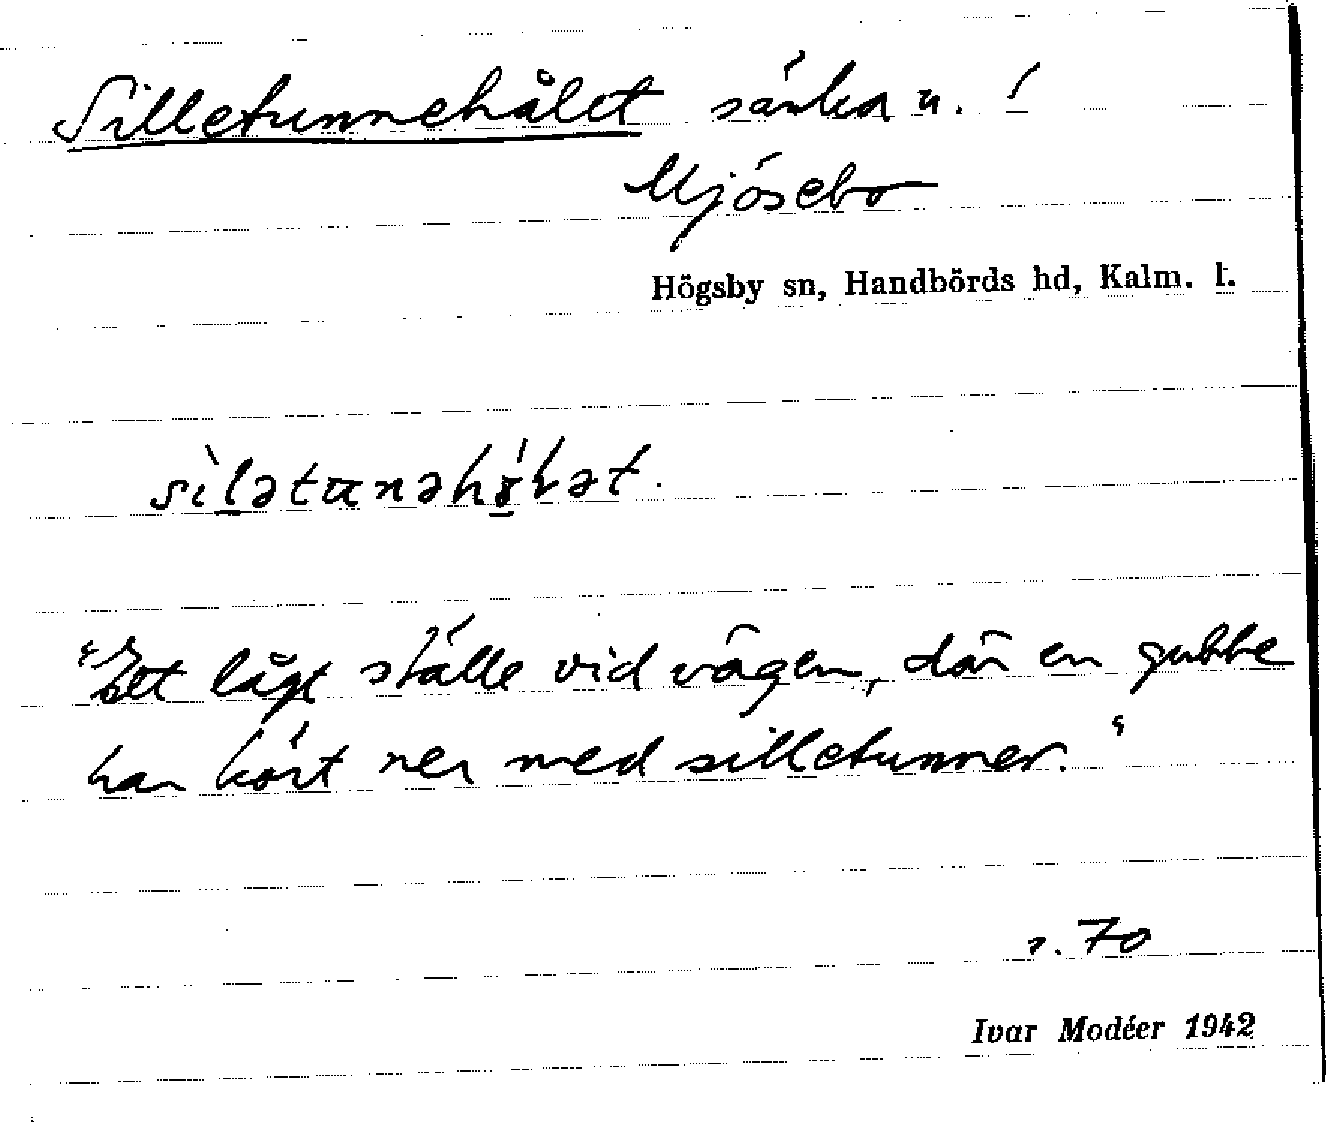 Silletunnehålet sänka u. !
Mjösebo
Högsby sn, Handbörds hd, Kalm. l.
sìlətunəhó̱lət.
"Ett lågt ställe vid vägen, där en gubbe
har kört ner med silletunner."
s. 70
Ivar Modéer 1942